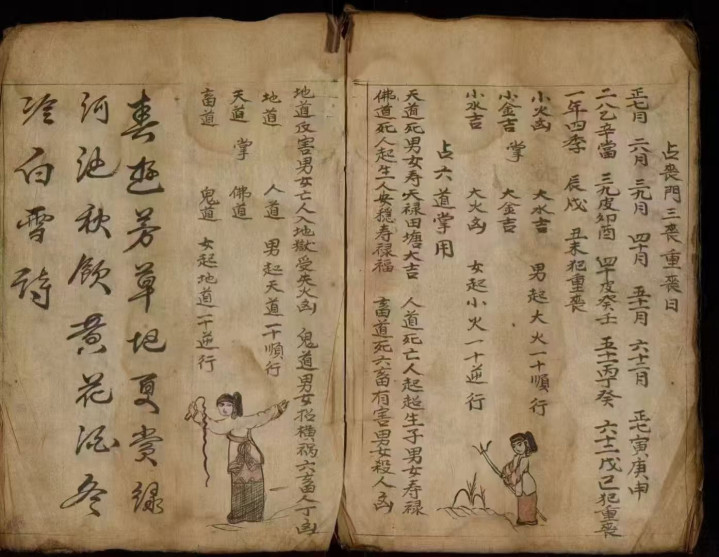 占喪門三喪重喪日
正七月 六月 三九月 四十月 五十一月 六十二月 正七寅庚申
二八乙辛當 三九皮卯酉 四十皮癸壬 五十一丙丁癸 六十二戊己犯重喪
一年四季 辰戌 丑未犯重喪
小火凶 大水吉 男起大火一十順行
小金吉 掌 大金吉
小水吉 大火凶 女起小火一十逆行
占六道掌用
天道死男女寿天禄田塘大吉 人道死亡人起超生子男女寿禄
佛道死人起生人安穏寿禄福 畜道死六畜有害男女殺人凶
地道伎害男女亡人入地獄受失火凶 鬼道男女招横祸六畜人丁凶
地道 人道 男起天道一十順行
天道 掌 佛道
畜道 鬼道 女起地道一十逆行
春遊芳草地夏賞緑
河池秋飲黄花酒冬
冷白雪詩